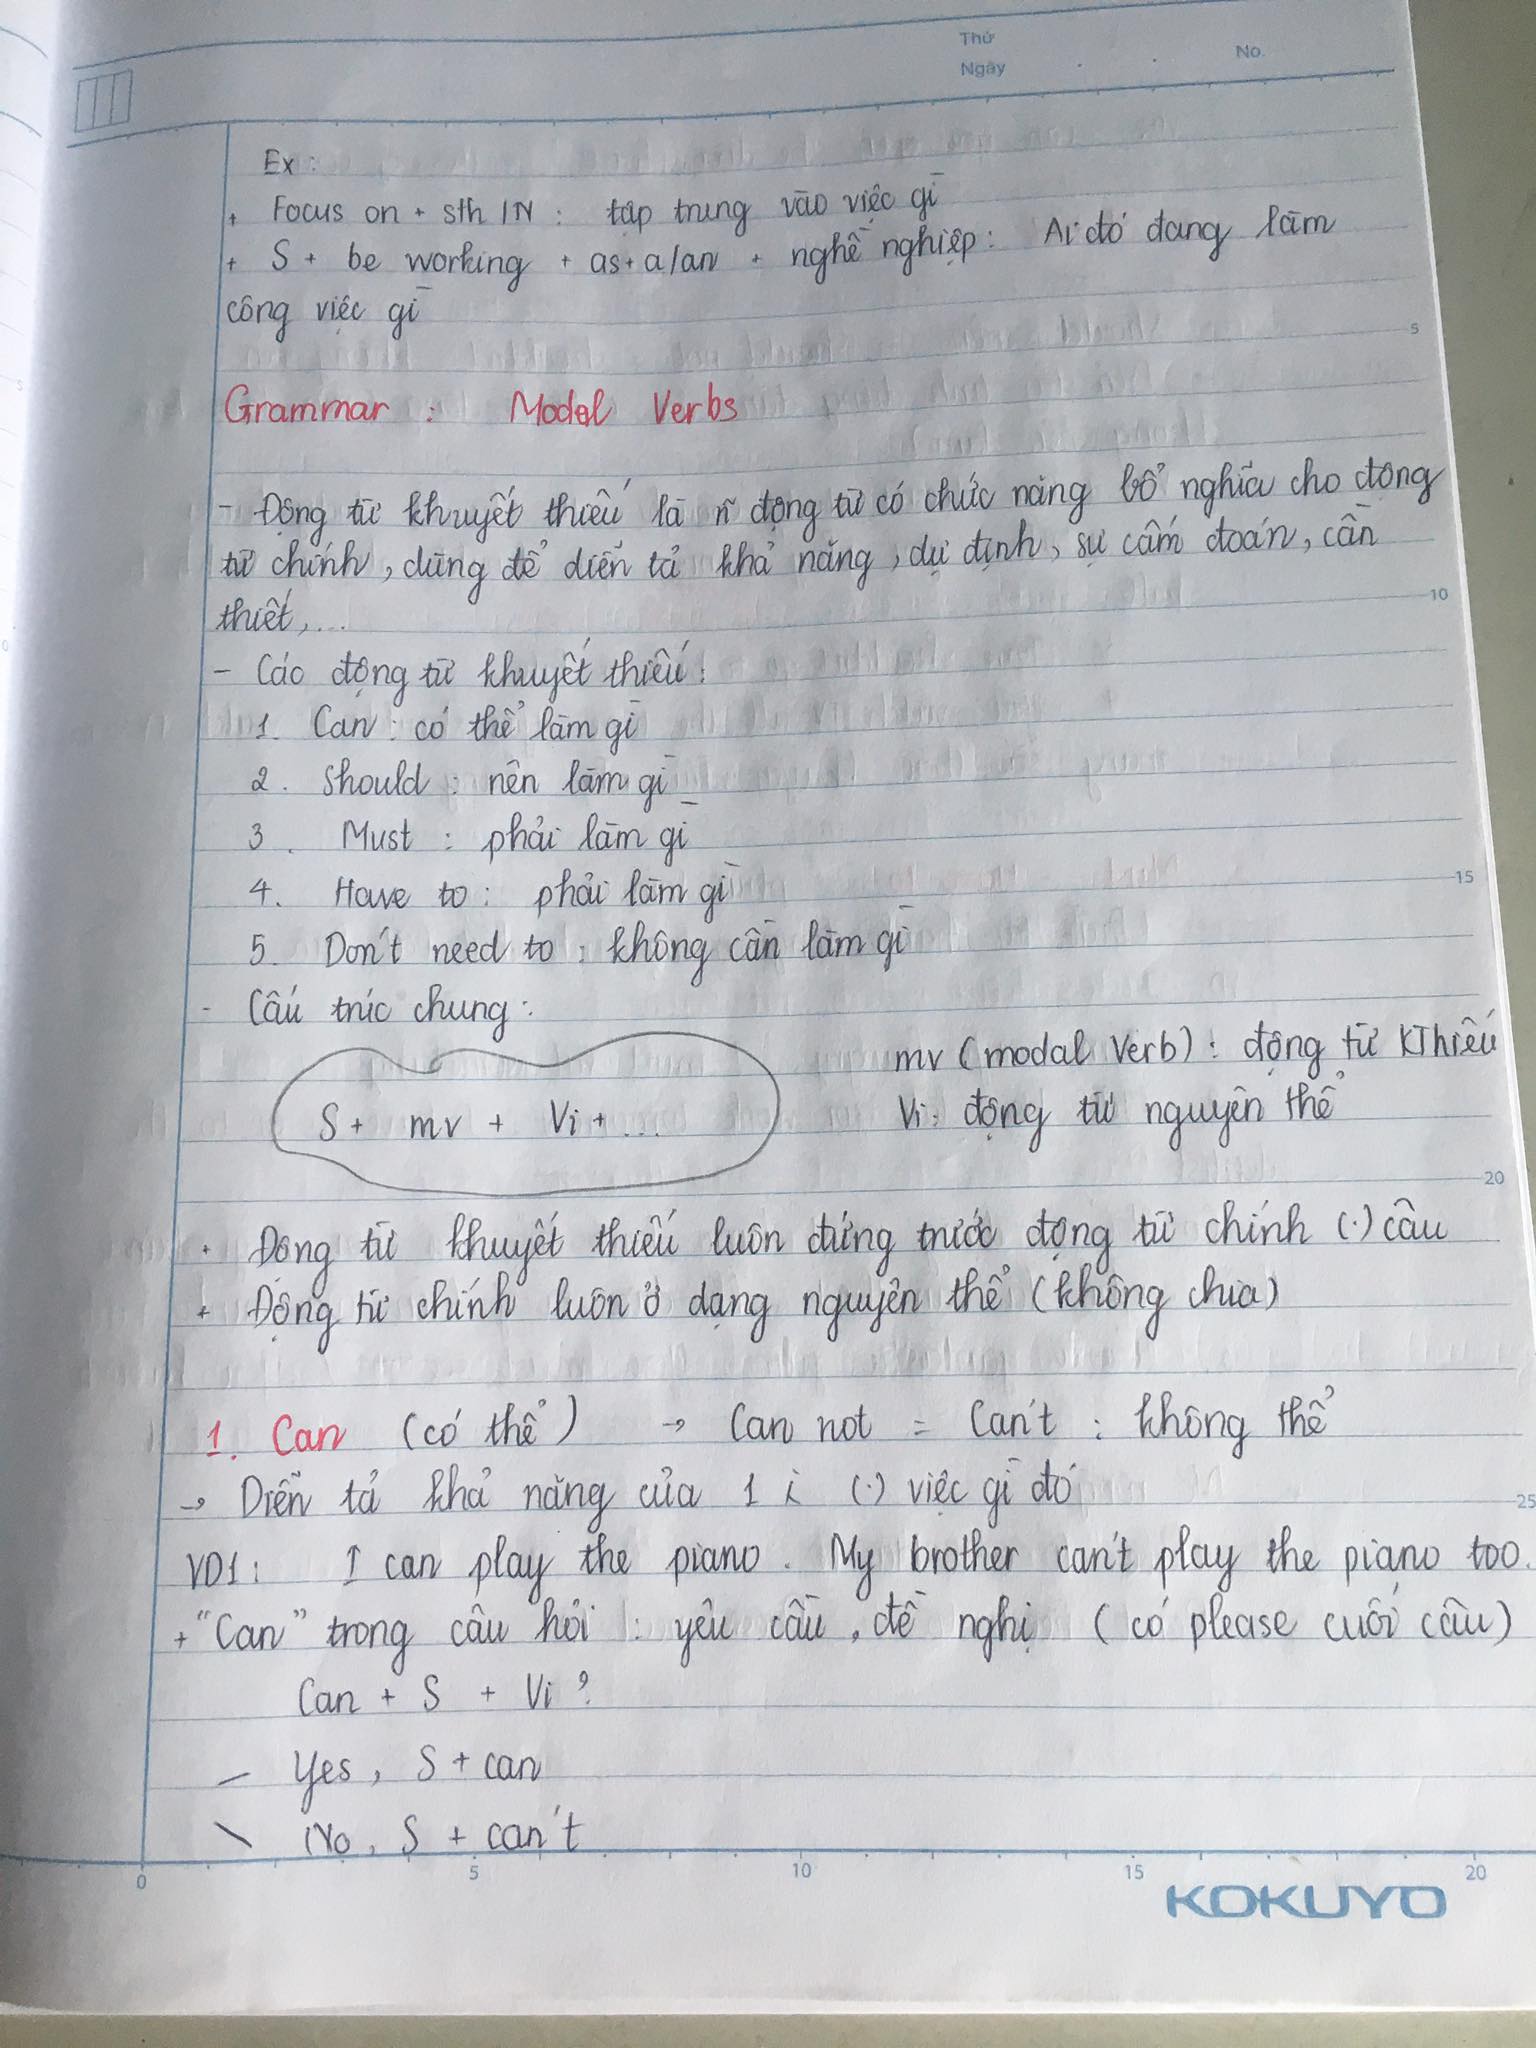 Thứ
Ngày
No.
Ex:
+ Focus on + sth / N : tập trung vào việc gì
+ S + be working + as + a/an + nghề nghiệp: Ai đó đang làm
công việc gì
5
Grammar : Modal Verbs
- Động từ khuyết thiếu là ñ động từ có chức năng bổ nghĩa cho động
từ chính, dùng để diễn tả khả năng, dự định, sự cấm đoán, cần
thiết,...
10
- Các động từ khuyết thiếu:
1. Can : có thể làm gì
2. Should : nên làm gì
3. Must : phải làm gì
4. Have to : phải làm gì
15
5. Don't need to : không cần làm gì
- Cấu trúc chung :
mv (modal Verb) : động từ KThiếu
S + mv + Vi + ...
Vi : động từ nguyên thể
20
+ Động từ khuyết thiếu luôn đứng trước động từ chính (.) câu
+ Động từ chính luôn ở dạng nguyên thể (không chia)
1. Can (có thể) → Can not = Can't : không thể
→ Diễn tả khả năng của 1 (.) việc gì đó
25
VD1: I can play the piano. My brother can't play the piano too.
+ "Can" trong câu hỏi : yêu cầu, đề nghị (có please cuối câu)
Can + S + Vi ?
Yes, S + can
No, S + can't
0 5 10 15 20
KOKUYO